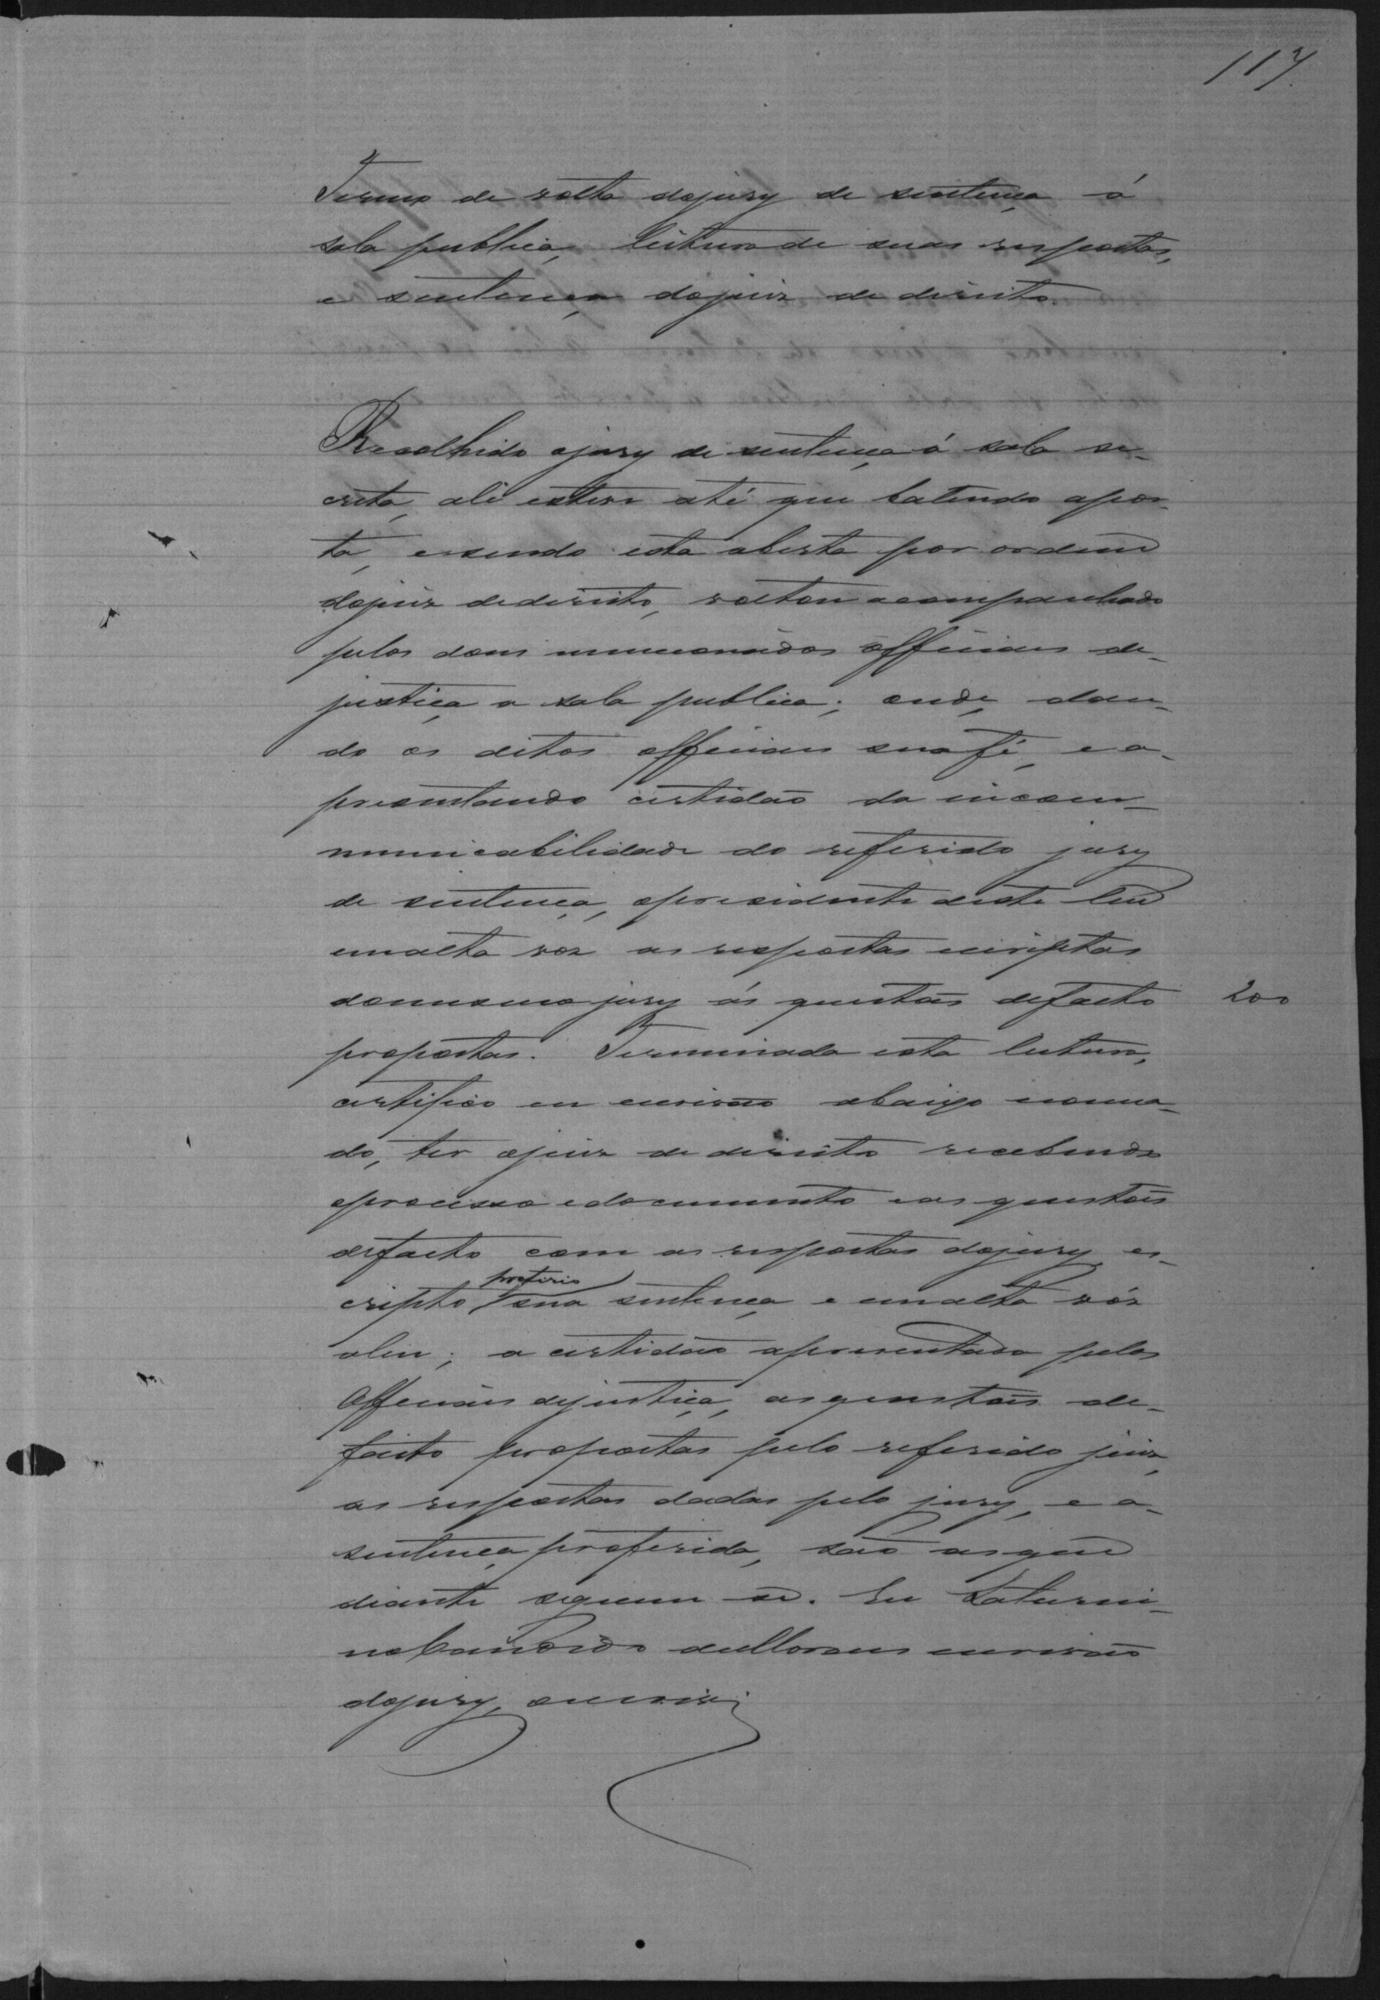 117
Termo de volta dojury de sentença á
sala publica, leitura de suas respostas,
e sentença dojuiz de direito.
Recolhido ojury de sentença á sala se-
creta, ali esteve até que batendo apor-
ta, esendo esta aberta por ordem
dojuiz dedireito, voltou acompanhado
pelos dous mencionados officiaes de
justiça a sala publica; onde, dan-
do os ditos officiaes sua fé, e a-
presentando certidão da incom-
municabilidade do referido jury
de sentença, opresidente deste leu
emalta voz as respostas escriptas
domesmo jury ás questões defacto
200
propostas. Terminada esta leitura,
certifico eu escrivão abaixo nomea-
do, ter ojuiz de direito recebendo
oprocesso edocumento eas questões
defacto com as respostas dojury es-
proferio
cripto, sua sentença e emalta vóz
aleu; a certidão apresentada pelos
Officiaes dejustiça, asquestões de-
facto propostas pelo referido juiz,
as respostas dadas pelo jury, e a-
sentença proferida, são asque
diante seguem se. Eu Saturni-
no Candido escrivão
dojury, oescrevi